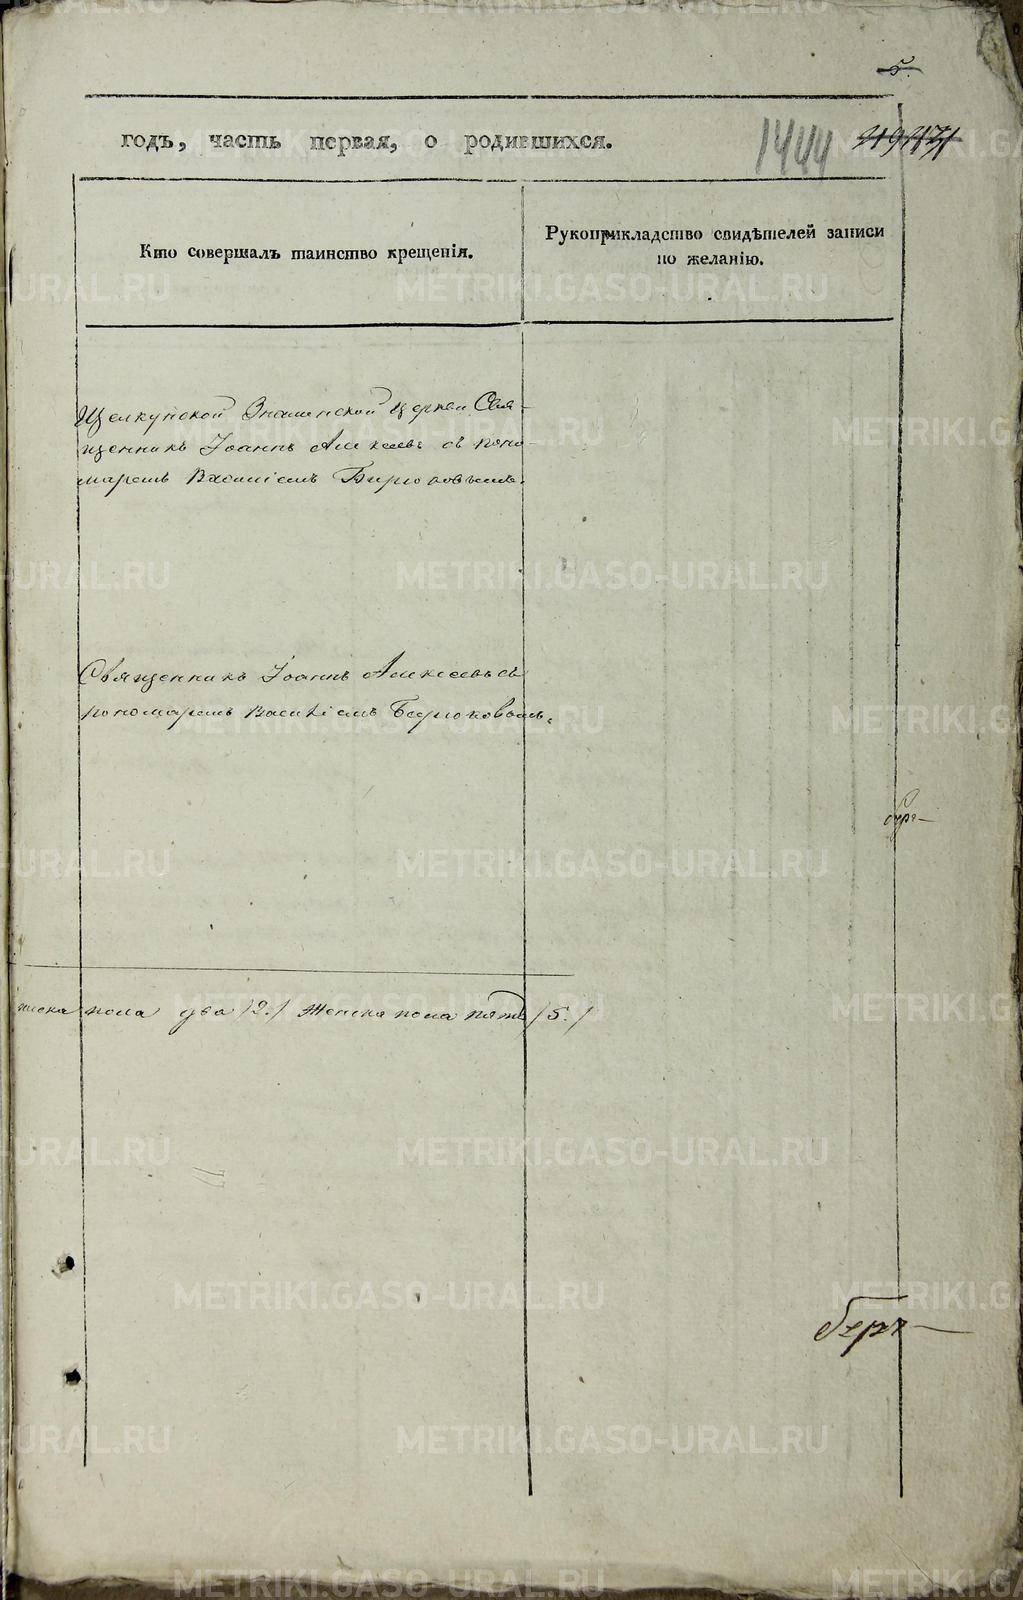 5.
годъ, часть первая, о родившихся.
1444
Кто совершалъ таинство крещенія.
Рукоприкладство свидѣтелей записи
по желанію.
Щелкунской Знаменской церкви Свя-
щенникъ Іоаннъ Алексеевъ съ поно-
маремъ Василіемъ Бирюковымъ.
Священникъ Іоаннъ Алексеевъ съ
пономаремъ Василіемъ Бирюковымъ.
пола два /2./ Женска пола пять /5./
METRIKI.GASO-URAL.RU